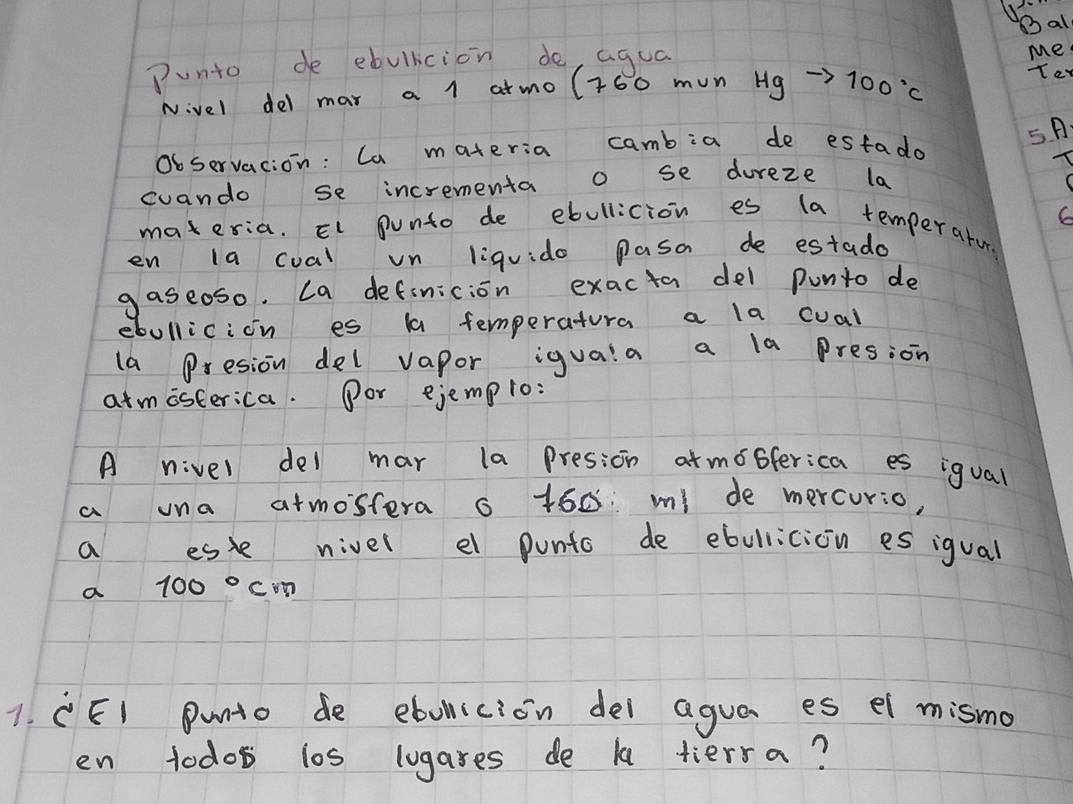 Punto de ebullición de agua
Nivel del mar a 1 atmo (760 mm Hg → 100°c
Observación: La materia cambia de estado
cuando se incrementa o se dureze la
materia. El punto de ebullición es la temperatura
en la cual un liquido pasa de estado
gaseoso. La definición exacta del punto de
ebullición es la temperatura a la cual
la Presión del vapor iguala a la Presion
atmósferica. Por ejemplo:
A nivel del mar la Presión atmósferica es igual
a una atmósfera o 760 ml de mercurio,
a este nivel el Punto de ebullición es igual
a 100 °cm
1. ¿El punto de ebullición del agua es el mismo
en todos los lugares de la tierra?
Bal
Me
Ter
5. A
6